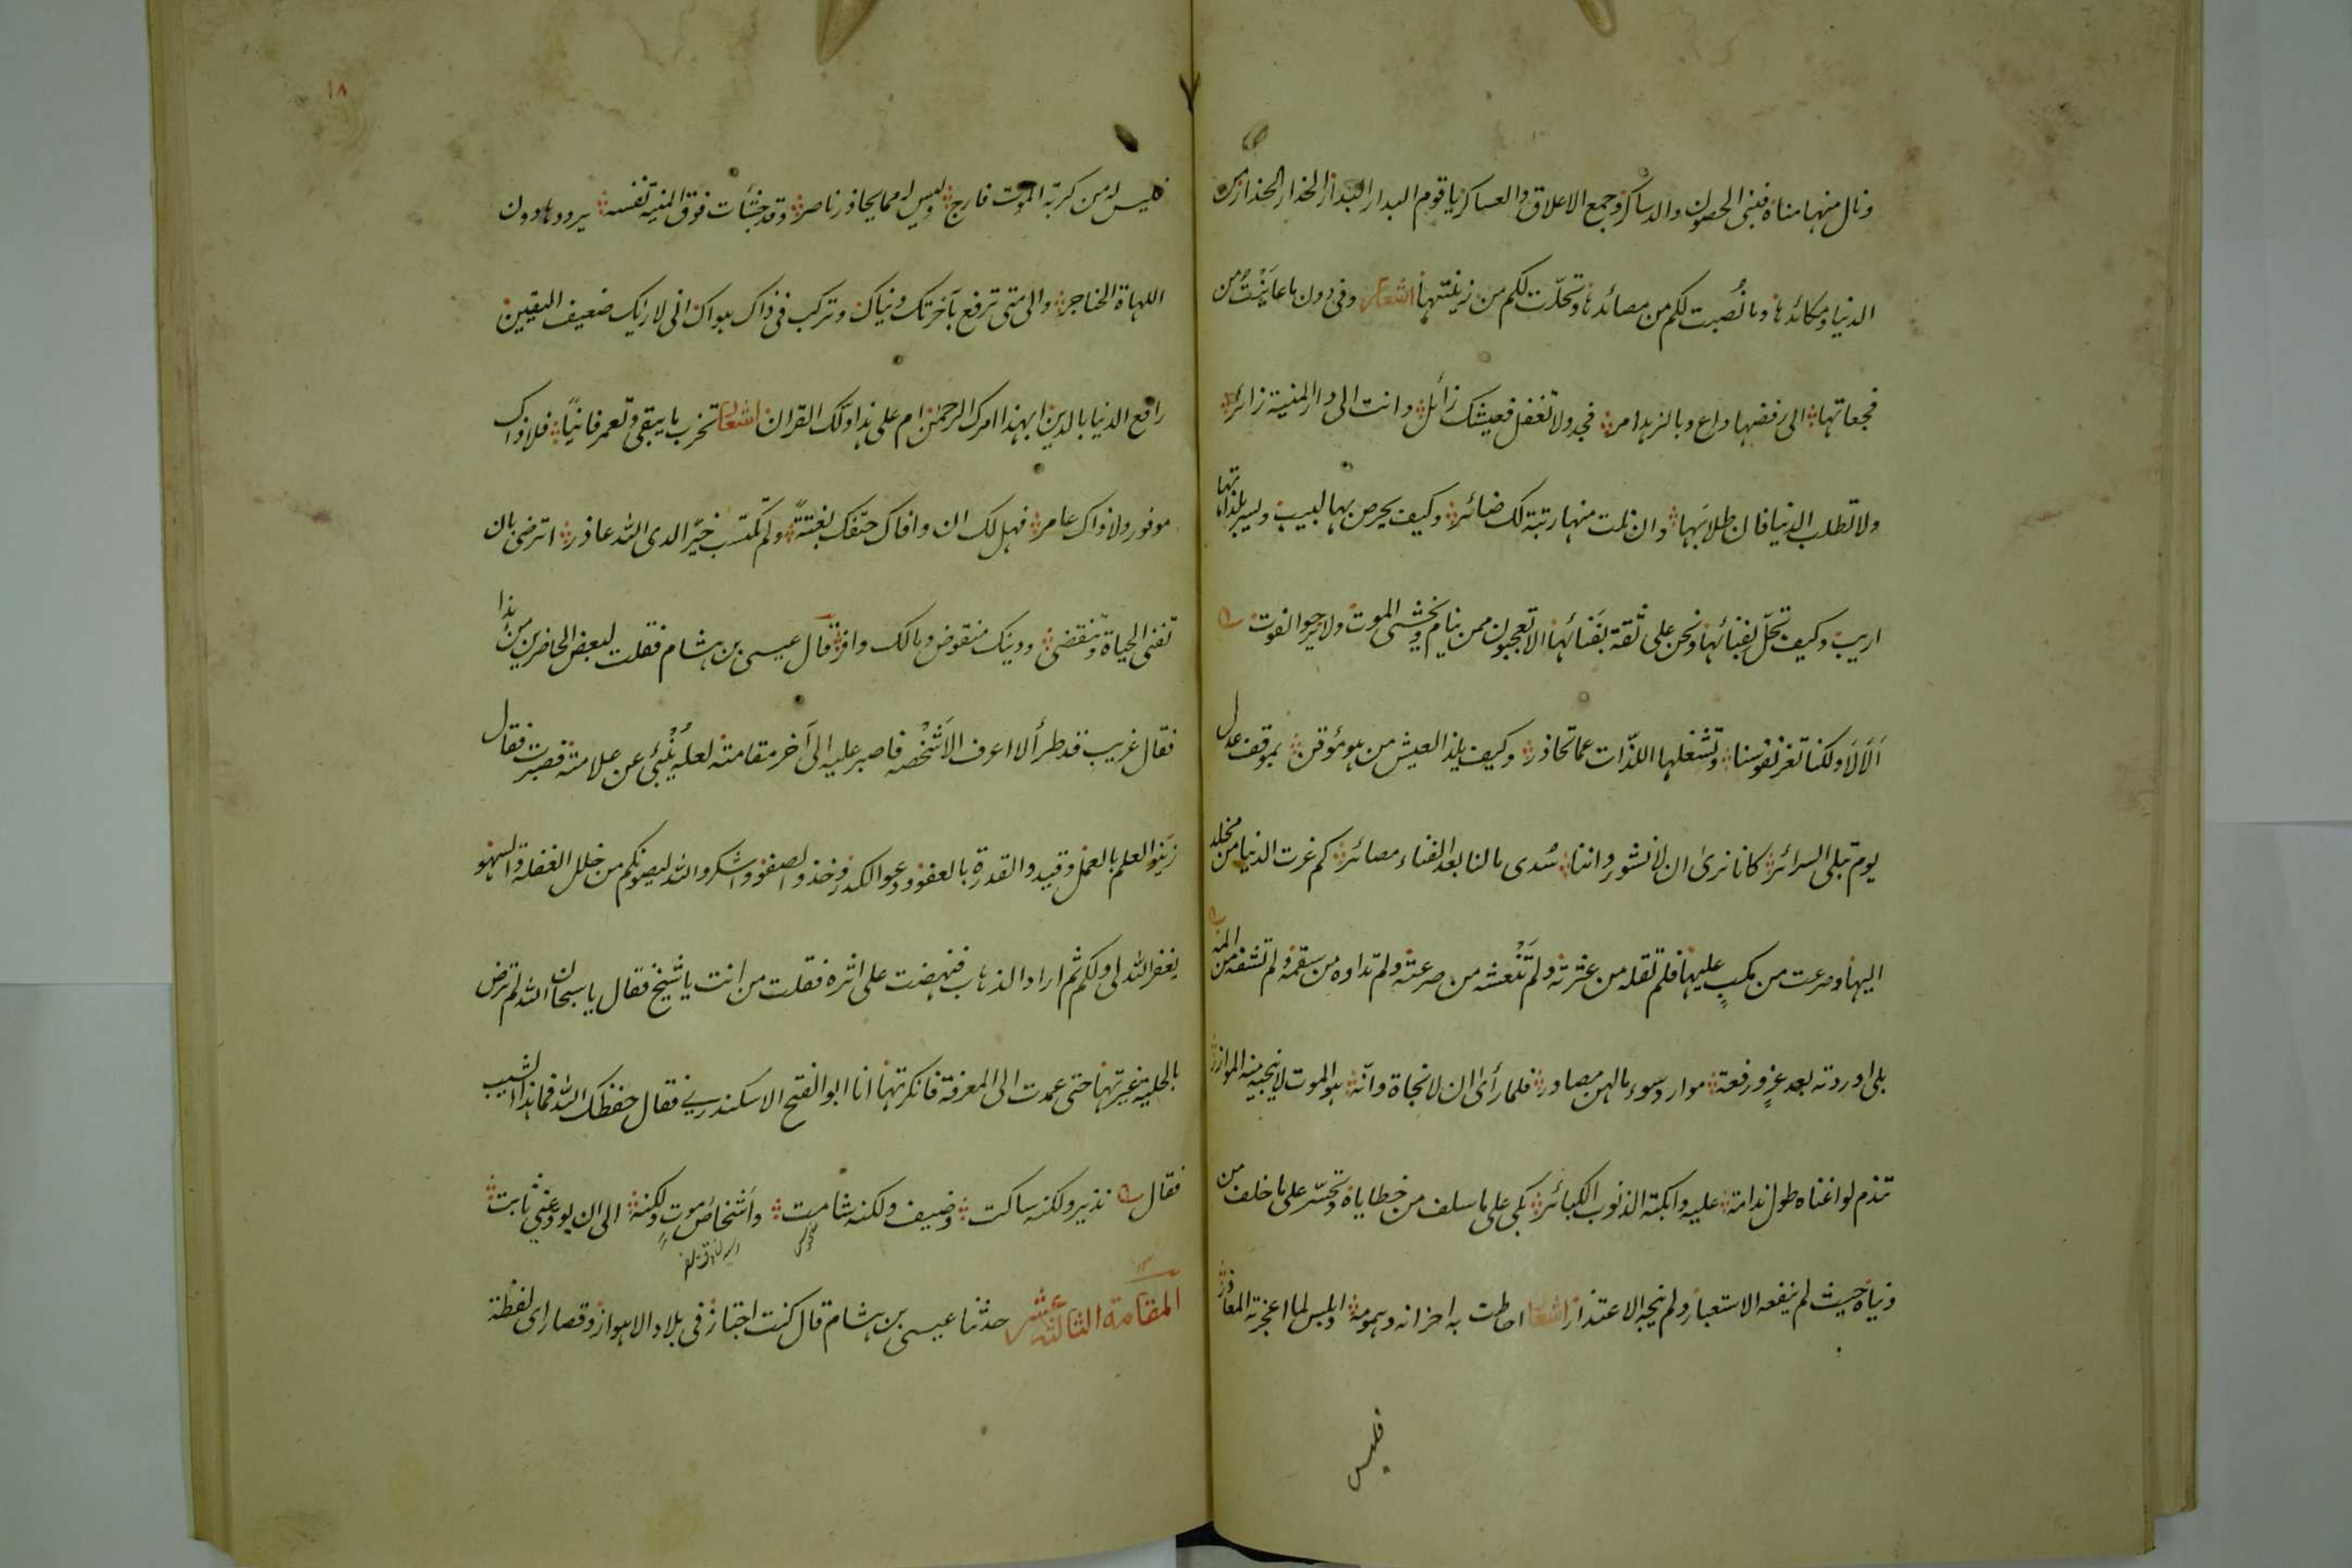 ونال منها مناه فبنى الحصون والدساكر وجمع الاعلاق والعساكر يا قوم البدار البدار الحذار الحذار من
الدنيا ومكائدها وما نُصبت لكم من مصائدها وتحلّت لكم من زينتها اشعار وفى دون ما عاينت من
فجعاتها الى رفضها داع وبالزهد امر فجد ولا تغفل فعيشك زائل وانت الى دار المنية زائر
ولا تطلب الدنيا فان طلابَها وان نلت منها رتبة لك ضائر وكيف يحرص بها لبيب وليسر بلذاتها
اريب وكيف تحلّ بفنائها ونحن على ثقة بفَنائها الا تعجبون ممن ينام ويخشى الموت ولا يرجوا الفوت
اَلا لَا ولكنا تغر نفوسنا وتشغلها اللذّات عما تحاذر وكيف يلذ العيش من هو مؤقن بموقف عدل
يوم تبلى السرائر كانا نرى ان لا نشور واننا سُدى مالنا بعد الفناء مصائر كم غرت الدنيا من مخلد
اليها وصرعت من مكبٍ عليها فلم تقله من عثرته ولم تَنْعشه من صرعته ولم تداوه من سقمه ولم تشفه من المه
بلى اوردته بعد عزٍ ورفعة موارد سوء مالهن مصادر فلما رأى ان لا نجاة وانّه هو الموت لا ينجيه منه الموازر
تندم لو اغناه طول ندامة عليه وابكته الذنوب الكبائر بكى على ما سلف من خطاياه وتحسّر على ما خلف من
دنياه حيث لم ينفعه الاستعبار ولم ينجه الاعتذار اشعار احاطت به احزانه وهمومه وابلس لما اعجزته المعاذر
فليس
١٨
فليس له من كربة الموت فارج وليس له مما يحاذر ناصر وقد جشأت فوق المنية نفسه يرددها دون
اللهاة الحناجر والى متى ترفع بآخرتك دنياك وتركب فى ذاك هواك انى لاراك ضعيف اليقين
راقع الدنيا بالدين ابهذا امرك الرحمن ام على هذا دلّك القران اشعار تخرب ما يبقى وتعمر فانيًا فلا ذاك
موفور ولا ذاك عامر فهل لك ان وافاك حتفك بغتةً ولم تكتسب خيرًا لدى الله عاذر اترضى بان
تفنى الحياة وتنقضى ودينك منقوض ومالك وافر قال عيسى بن هشام فقلت لبعض الحاضرين من هذا
فقال غريب قد طرأ لا اعرف الا شَخْصه فاصبر عليه الى آخر مقامته لعله يُنْبئ عن علامته فصبرت فقال
زينوا العلم بالعمل وقيدوا القدرة بالعفو ودعوا الكدر وخذوا الصفو واشكروا الله ليصونكم من خلل الغفلة والسهو
يغفر الله لى ولكم ثم اراد الذهاب فنهضت على اثره فقلت من انت يا شيخ فقال يا سبحان الله لم ترض
بالحلية غيرتها حتى عمدت الى المعرفة فانكرتها انا ابو الفتح الاسكندرى فقال حفظك الله فما هذا الشيب
فقال نذير ولكنه ساكت وضيف ولكنه شامت واَشْخاص موتٍ ولكنه الى ان يودعنى ثابت
المقامة الثالثة عشر حدثنا عيسى بن هشام قال كنت اجتاز فى بلاد الاهواز وقصاراى لفظة